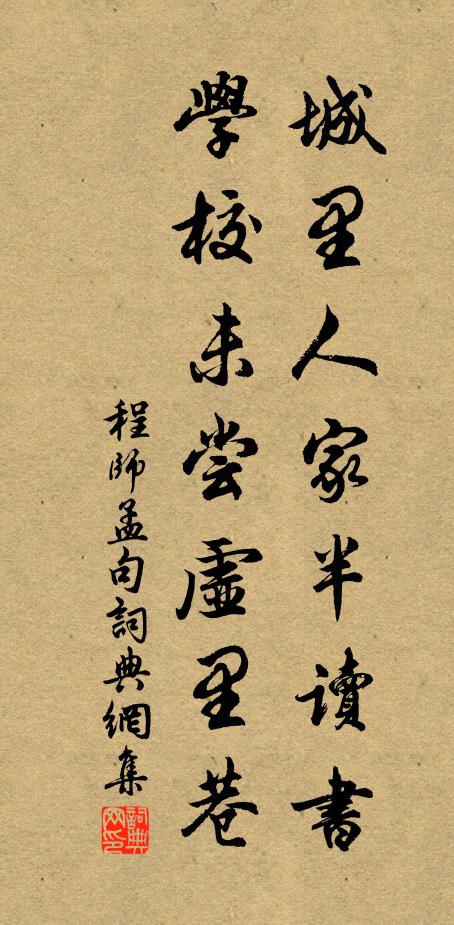 城里人家半讀書
學校未尝虚里巷
程師孟句詞典網集
詞典网印